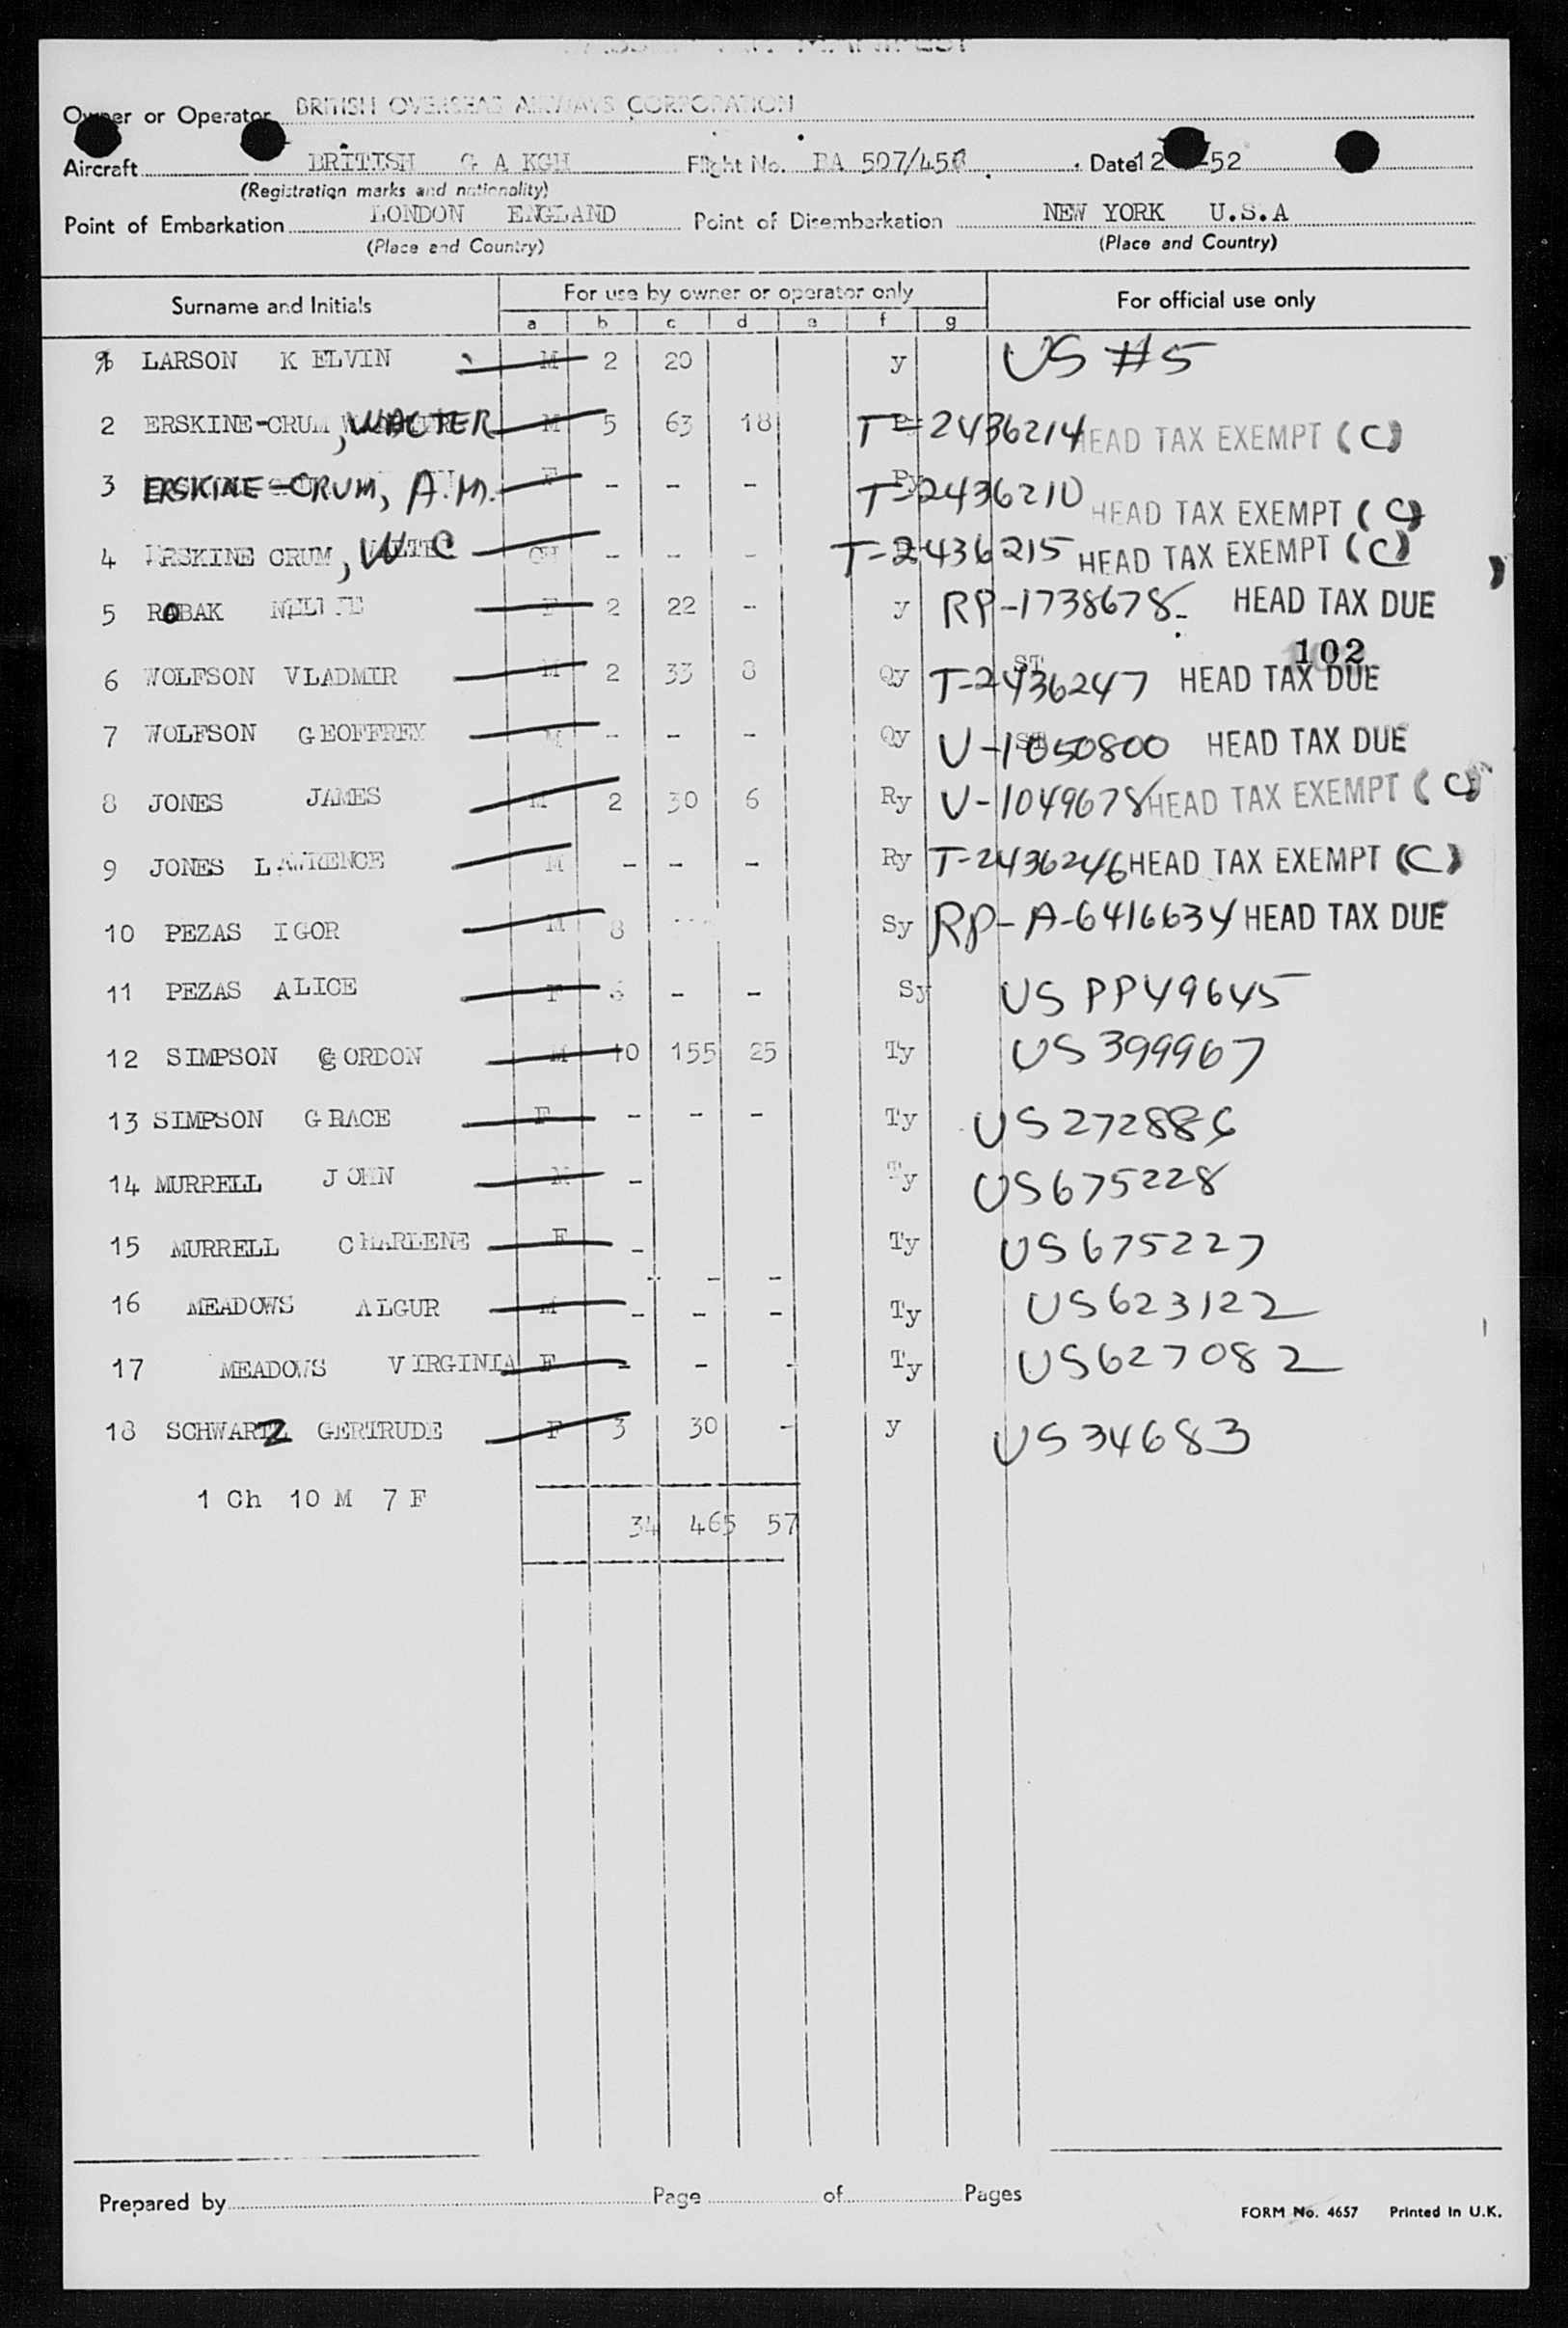 PASSENGER MANIFEST
Owner or Operator BRITISH OVERSEAS AIRWAYS CORPORATION
Aircraft BRITISH G A KGH Flight No. BA 507/450 Date 12 -52
(Registration marks and nationality)
Point of Embarkation LONDON ENGLAND Point of Disembarkation NEW YORK U.S.A
(Place and Country) (Place and Country)
Surname and Initials For use by owner or operator only For official use only
a b c d e f g
LARSON K ELVIN M 2 20 y US #5
2 ERSKINE-CRUM, WALTER M 5 63 18 T-2436214 HEAD TAX EXEMPT (C)
3 ERSKINE-CRUM, A.M. F - - - Py T-2436210 HEAD TAX EXEMPT (C)
4 ERSKINE CRUM, W C CH - - - T-2436215 HEAD TAX EXEMPT (C)
5 ROBAK NELLIE F 2 22 - y RP-1738678 HEAD TAX DUE
102
6 WOLFSON VLADMIR M 2 33 8 Qy ST T-2436247 HEAD TAX DUE
7 WOLFSON GEOFFREY M - - - Qy ST U-1050800 HEAD TAX DUE
8 JONES JAMES M 2 30 6 Ry U-1049678 HEAD TAX EXEMPT (C)
9 JONES LAWRENCE M - - - Ry T-2436246 HEAD TAX EXEMPT (C)
10 PEZAS IGOR M 8 Sy RP-A-6416634 HEAD TAX DUE
11 PEZAS ALICE F - - Sy US PP49645
12 SIMPSON GORDON M 10 155 25 Ty US 399967
13 SIMPSON GRACE F - - - Ty US 272886
14 MURRELL JOHN M - Ty US 675228
15 MURRELL CHARLENE F - - - - Ty US 675227
16 MEADOWS ALGUR M - - - Ty US 623122
17 MEADOWS VIRGINIA F - - - Ty US 627082
18 SCHWARTZ GERTRUDE F 3 30 - y US 34683
1 Ch 10 M 7 F
34 465 57
Prepared by Page of Pages
FORM No. 4657 Printed in U.K.